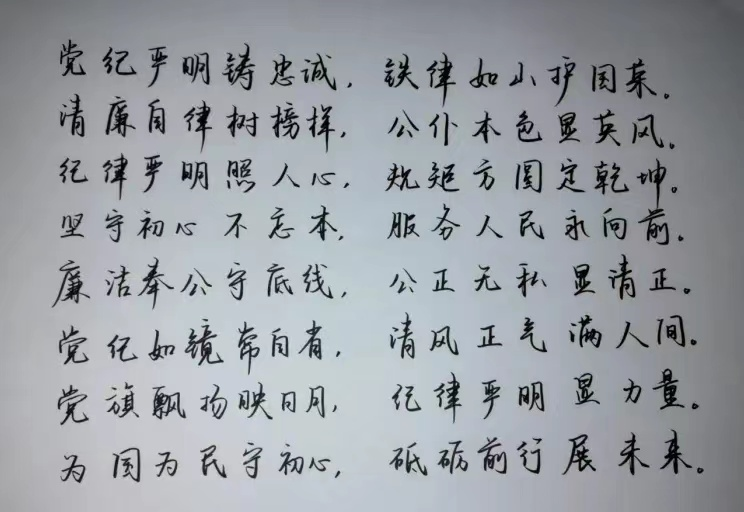 党纪严明铸忠诚，铁律如山护国荣。
清廉自律树榜样，公仆本色显英风。
纪律严明照人心，规矩方圆定乾坤。
坚守初心不忘本，服务人民永向前。
廉洁奉公守底线，公正无私显清正。
党纪如镜常自省，清风正气满人间。
党旗飘扬映日月，纪律严明显力量。
为国为民守初心，砥砺前行展未来。